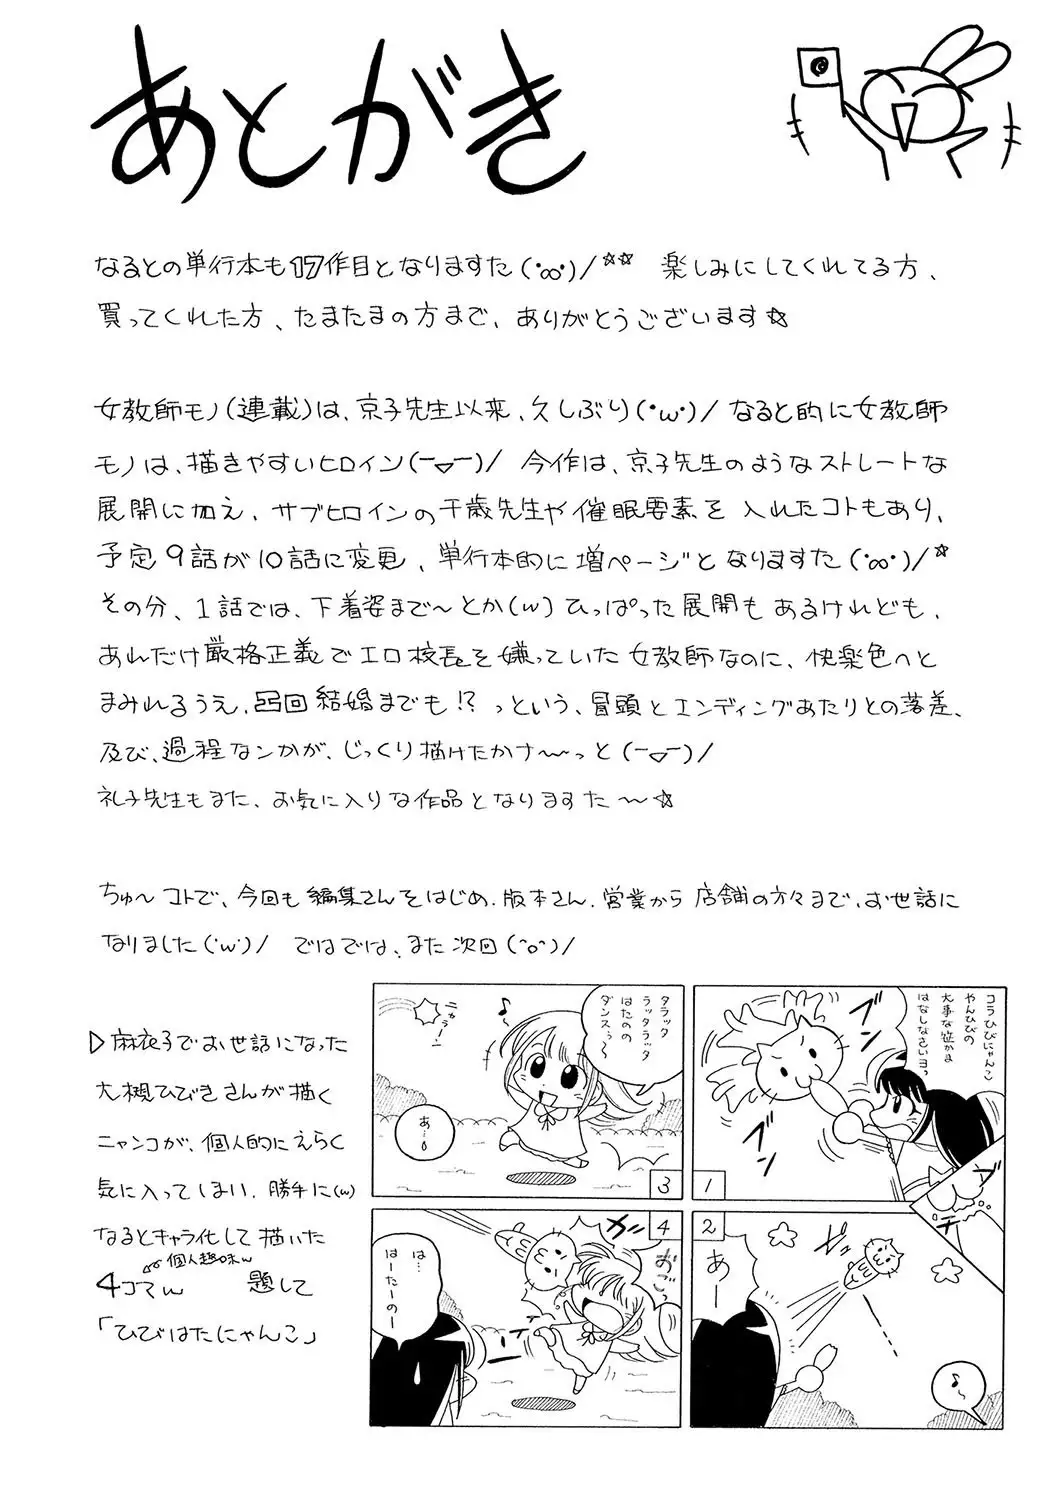 あとがき
なるとの単行本も17作目となりますた(･∞･)/☆☆ 楽しみにしてくれてる方、
買ってくれた方、たまたまの方まで、ありがとうございます☆
女教師モノ(連載)は、京子先生以来、久しぶり(･ω･)/ なると的に女教師
モノは、描きやすいヒロイン(ー▽ー)/ 今作は、京子先生のようなストレートな
展開に加え、サブヒロインの千歳先生や催眠要素を入れたコトもあり、
予定9話が10話に変更、単行本的に増ページとなりますた(･∞･)/☆
その分、1話では、下着姿まで〜とか(w)ひっぱった展開もあるけれども、
あれだけ厳格正義でエロ校長を嫌っていた女教師なのに、快楽色へと
まみれるうえ、凸凹結婚までも!?っという、冒頭とエンディングあたりとの落差、
及び、過程なンかが、じっくり描けたかナ〜っと(ー▽ー)/
礼子先生もまた、お気に入りな作品となりますた〜☆
ちゅ〜コトで、今回も編集さんをはじめ、版本さん、営業から店舗の方々まで、お世話に
なりました(･w･)/ ではでは、また次回(^o^)/
▷麻衣子でお世話になった
大槻ひびきさんが描く
ニャンコが、個人的にえらく
気に入ってしまい、勝手に(w)
なるとキャラ化して描いた
個人趣味w
4コマw 題して
「ひびはたにゃんこ」
コラひびにゃんこ
やんひびの
大事な
はなしなさいヨっ
1
あー
2
♪〜
タラッタ
ラッタラッタ
はたのの
ダンスぅ〜
♪
ニャラー!
あ…
3
ガッ
おごっ
は…
はーたーのー
4